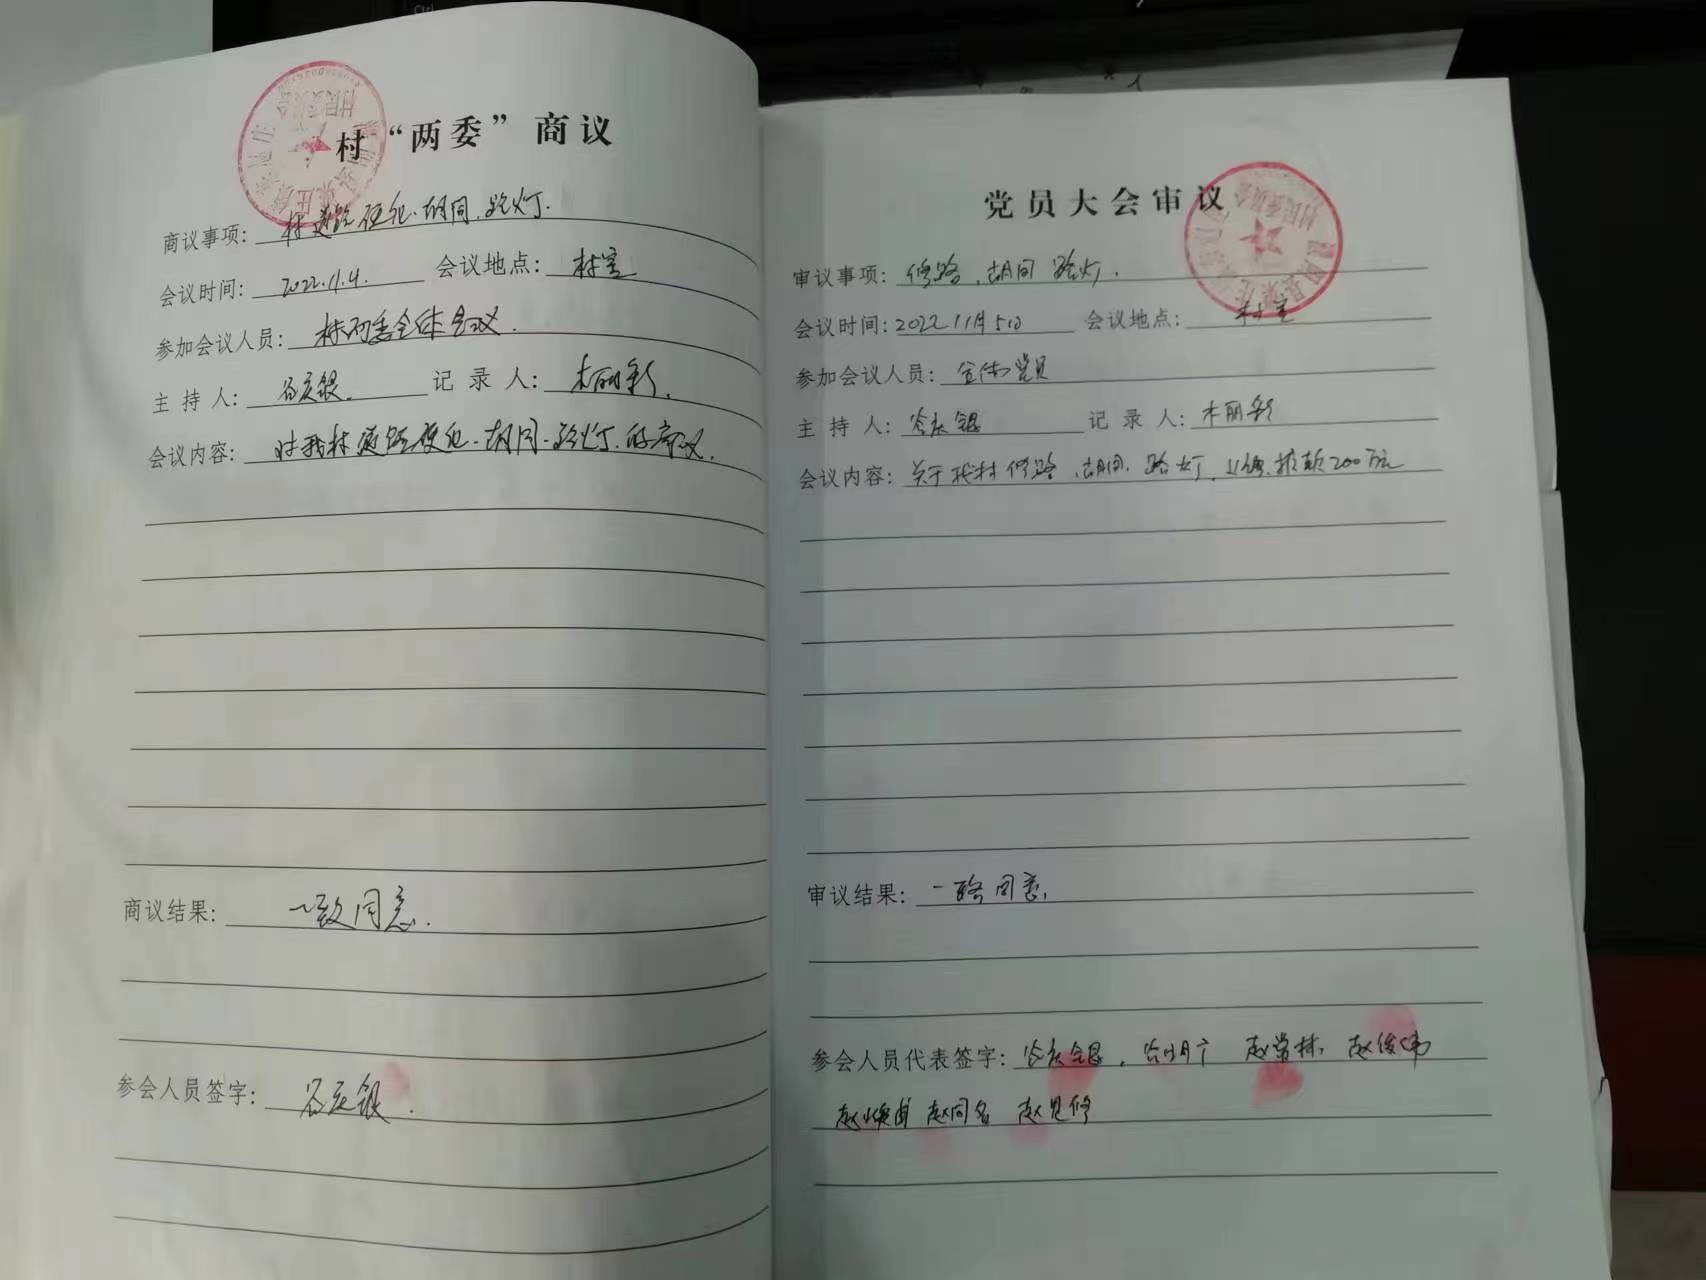 村“两委”商议
商议事项: 村道路硬化.胡同.路灯.
会议时间: 2022.11.4. 会议地点: 村室
参加会议人员: 村两委全体会议.
主持人: 谷庆银. 记录人: 木丽彩.
会议内容: 对我村道路硬化.胡同.路灯.的商议.
商议结果: 一致同意.
参会人员签字: 谷庆银.
党员大会审议
审议事项: 修路.胡同 路灯.
会议时间: 2022 11月5日 会议地点: 村室
参加会议人员: 全体党员
主持人: 谷庆银 记录人: 木丽彩
会议内容: 关于我村修路.胡同.路灯. 拨款200万元
审议结果: 一路同意.
参会人员代表签字: 谷庆银. 赵常林. 赵俊伟
赵同名 赵见修